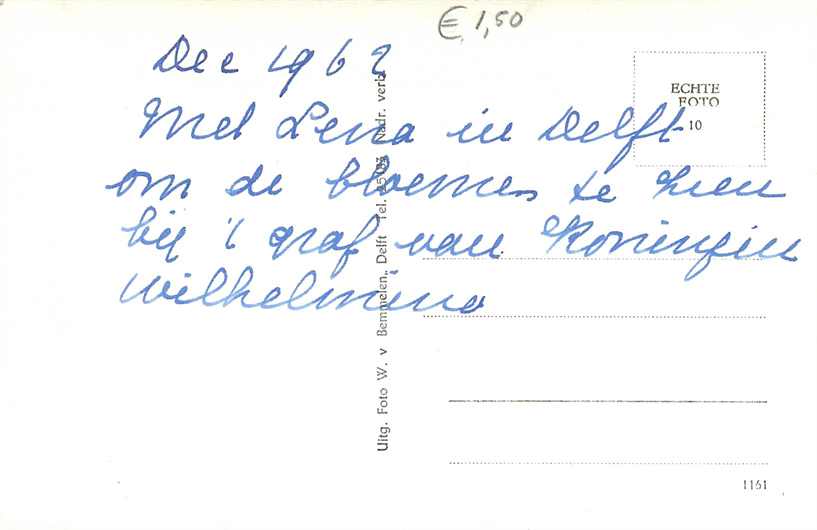 € 1,50
Dec 1962
ECHTE
FOTO
10
Met Lena in Delft
om de bloemen te zien
bij 't graf van Koningin
Wilhelmina
Uitg. Foto W. v Bemmelen, Delft Tel. Nadr. verb.
1161